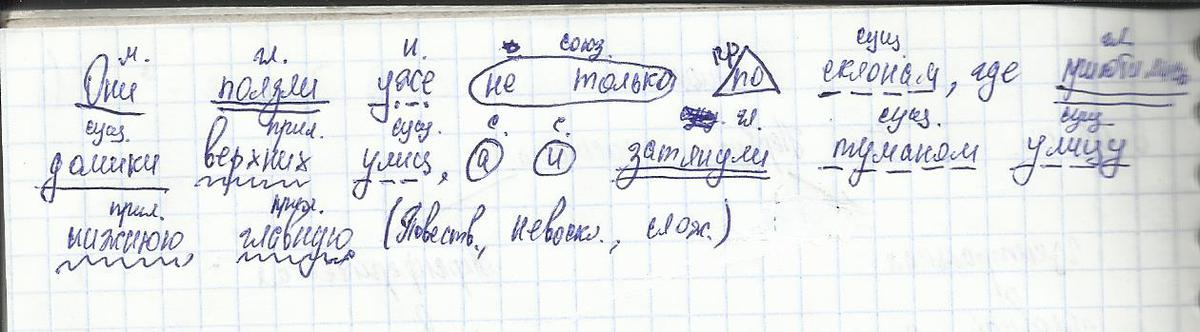 м. гл. н. союз. пр сущ гл
Они ползли уже не только по склонам, где ютились
сущ. прил. сущ. с. с. гл. сущ. сущ
домики верхних улиц, а и затянули туманом улицу
прил. прил.
нижнюю, главную. (Повеств., невоскл., слож.)